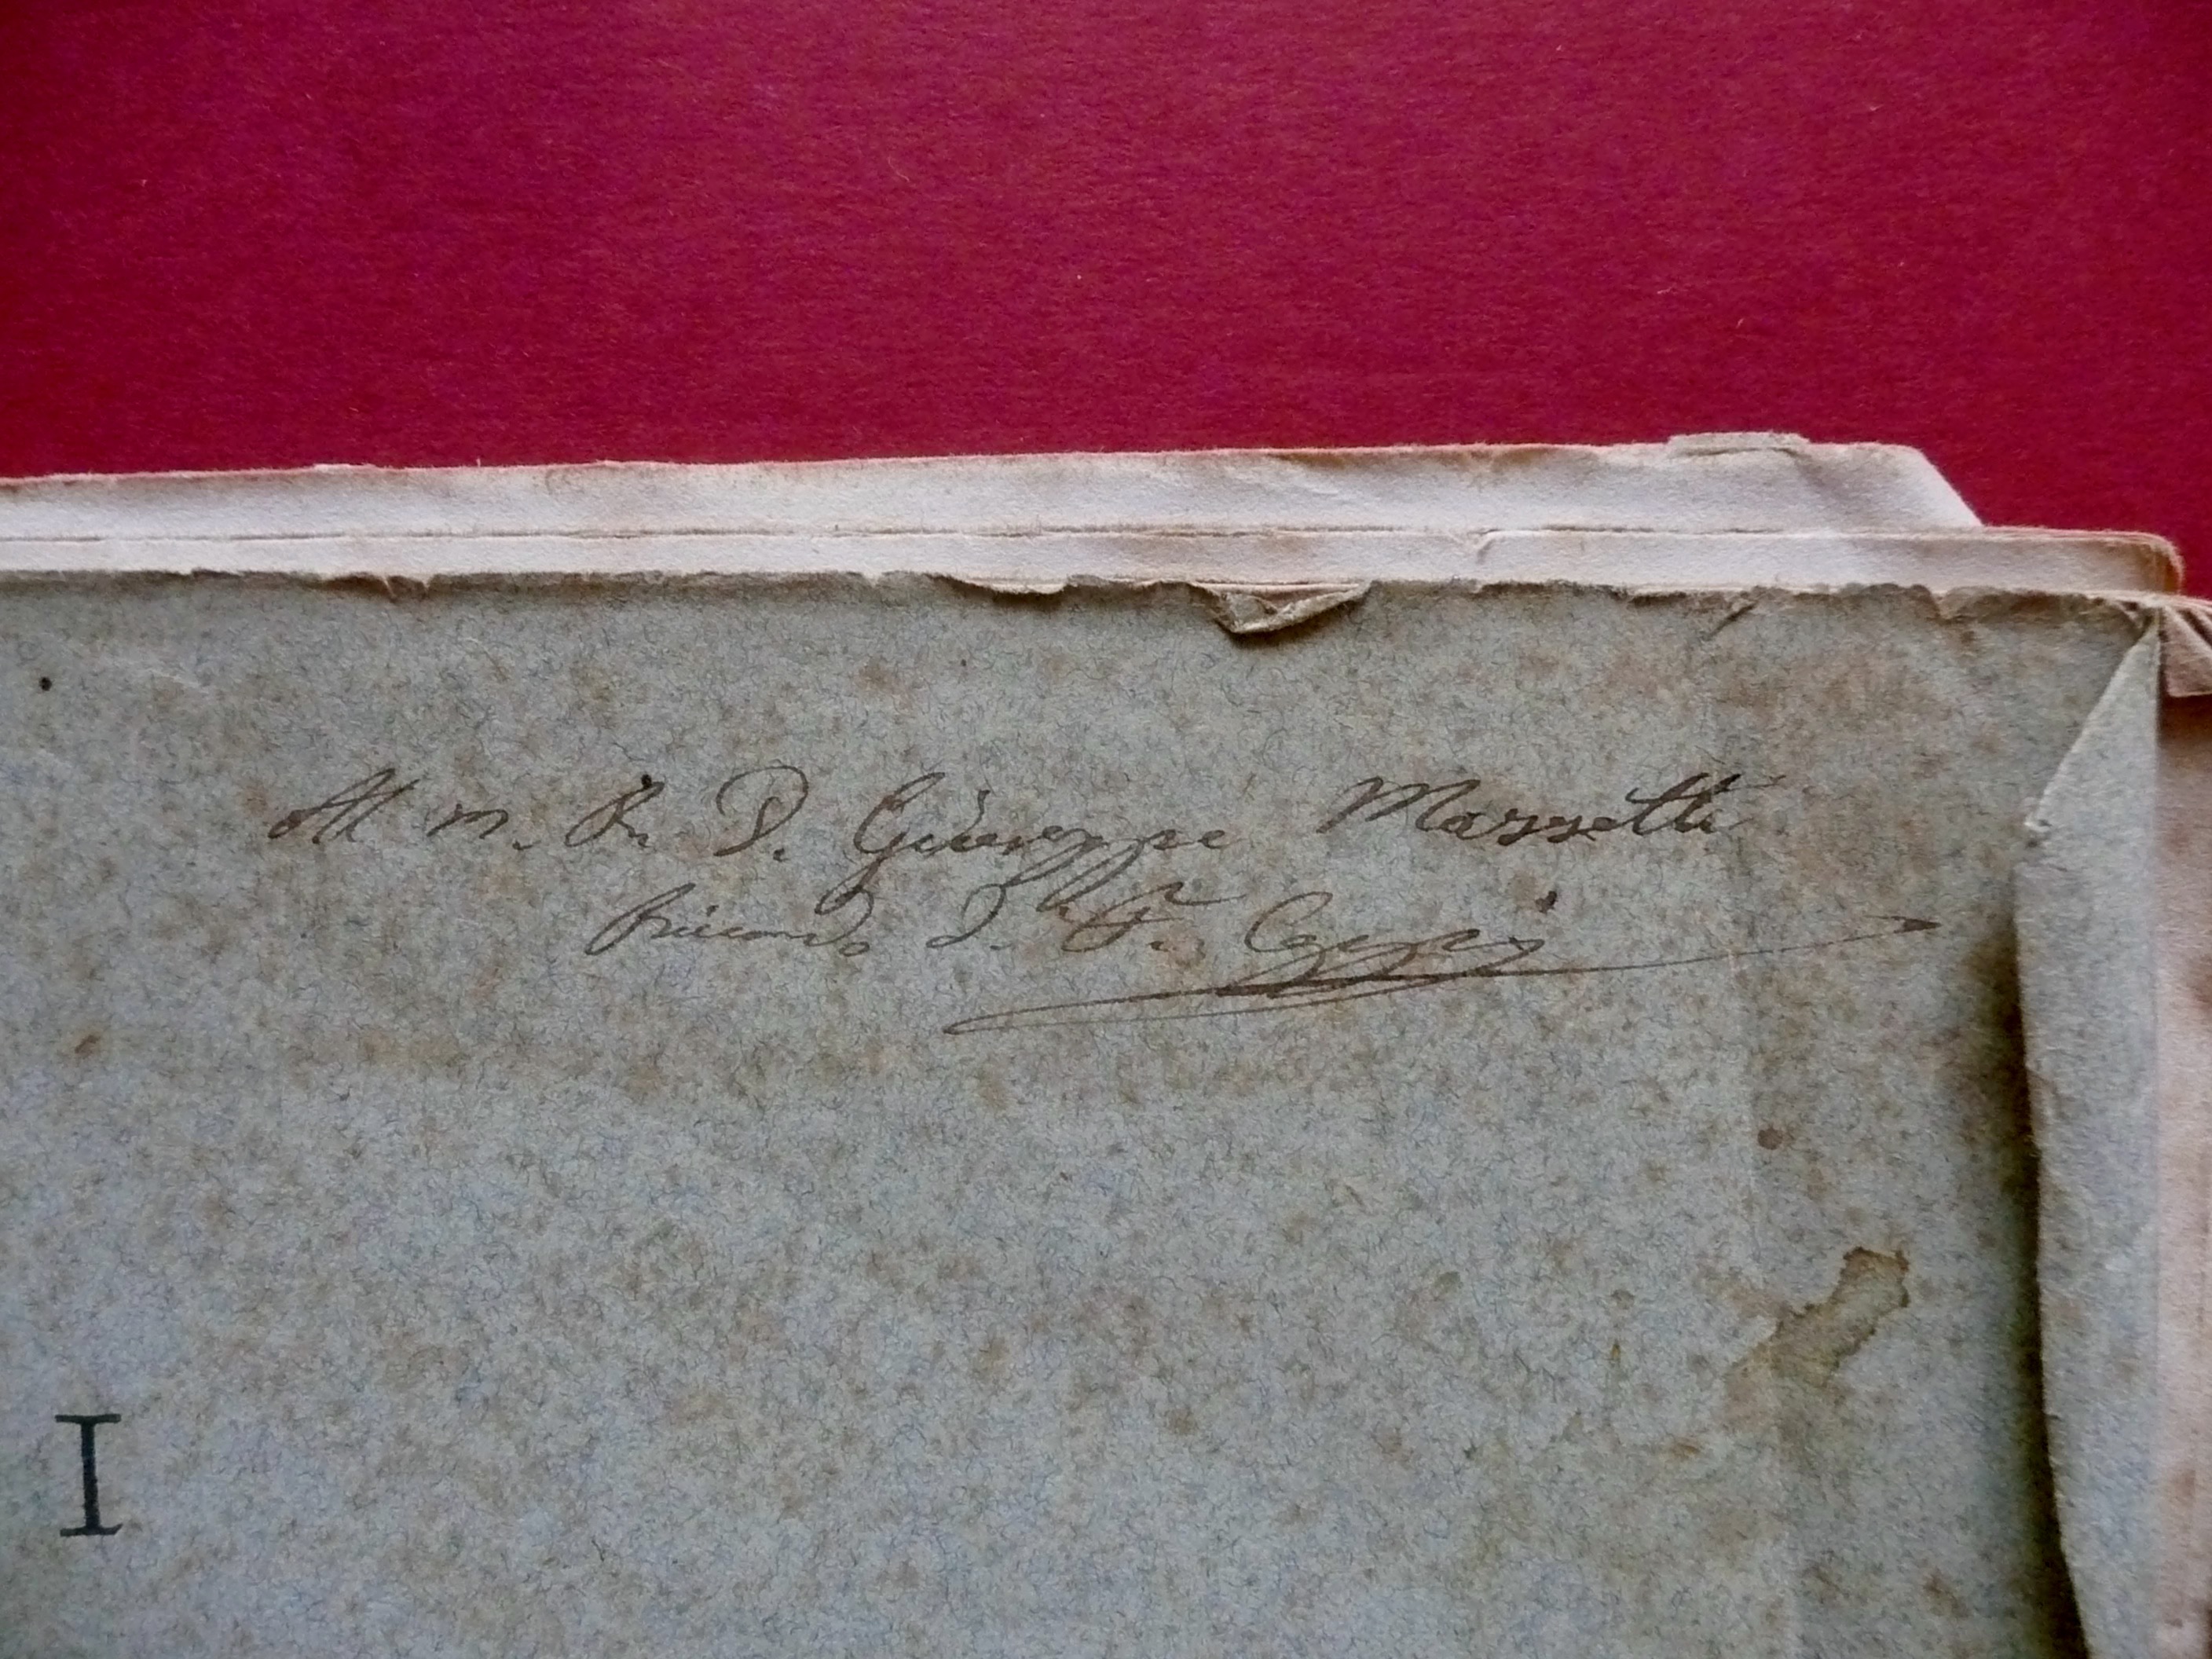 Al m. R. D. Giuseppe Mazzetti
Ricordo D. F.
I